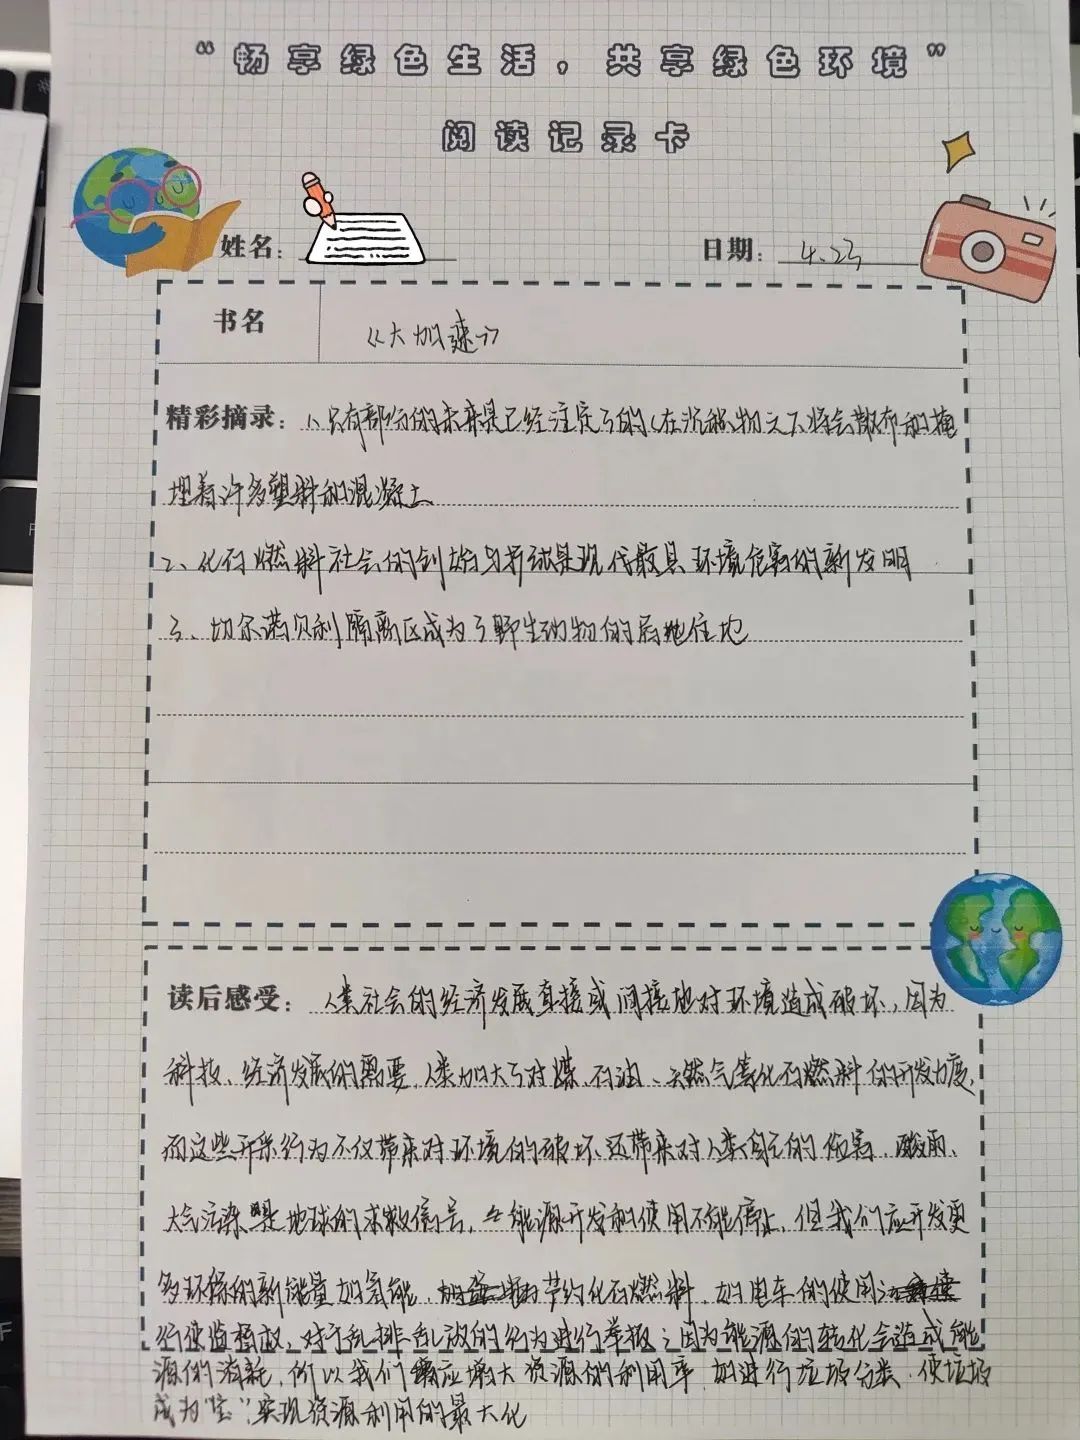 “畅享绿色生活，共享绿色环境”
阅读记录卡
姓名： 日期：4.23
书名 《大加速》
精彩摘录：1、只有部分的未来是已经注定了的（在沉积物之下将会散布和掩
埋着许多塑料和混凝土
2、化石燃料社会的创始与折动是现代最具环境危害的新发明
3、切尔诺贝利隔离区成为了野生动物的居地住地
读后感受：人类社会的经济发展直接或间接地对环境造成破坏，因为
科技、经济发展的需要，人类加大了对煤、石油、天然气等化石燃料的开发力度，
而这些开采行为不仅带来对环境的破坏、还带来对人类自己的危害，酸雨、
大气污染是地球的求救信号，能源开发和使用不能停止，但我们应开发更
多环保的新能量如氢能，节约化石燃料，如电车的使用；
行使监督权，对于乱排乱放的行为进行举报；因为能源的转化会造成能
源的消耗，所以我们应增大资源的利用率，如进行垃圾分类，使垃圾
成为“宝”，实现资源利用的最大化